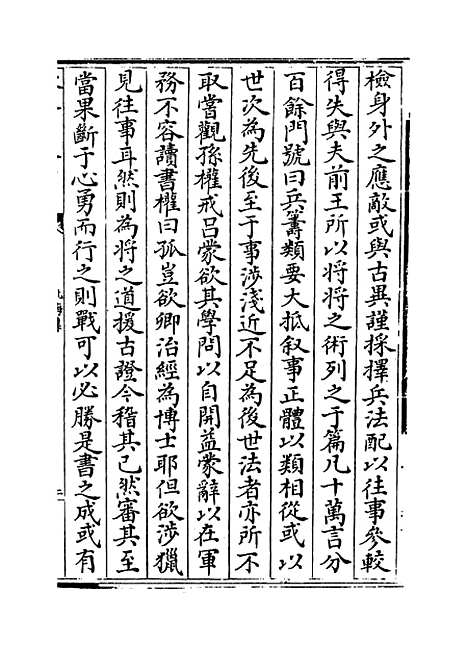 檢身外之應敵或與古異謹採擇兵法配以往事參較
得失與夫前王所以將將之術列之于篇凡十萬言分
百餘門號曰兵籌類要大抵叙事正體以類相從或以
世次為先後至于事涉淺近不足為後世法者亦所不
取嘗觀孫權戒呂蒙欲其學問以自開益蒙辭以在軍
務不容讀書權曰孤豈欲卿治經為博士耶但欲涉獵
見往事耳然則為將之道援古證今稽其已然審其至
當果斷于心勇而行之則戰可以必勝是書之成或有